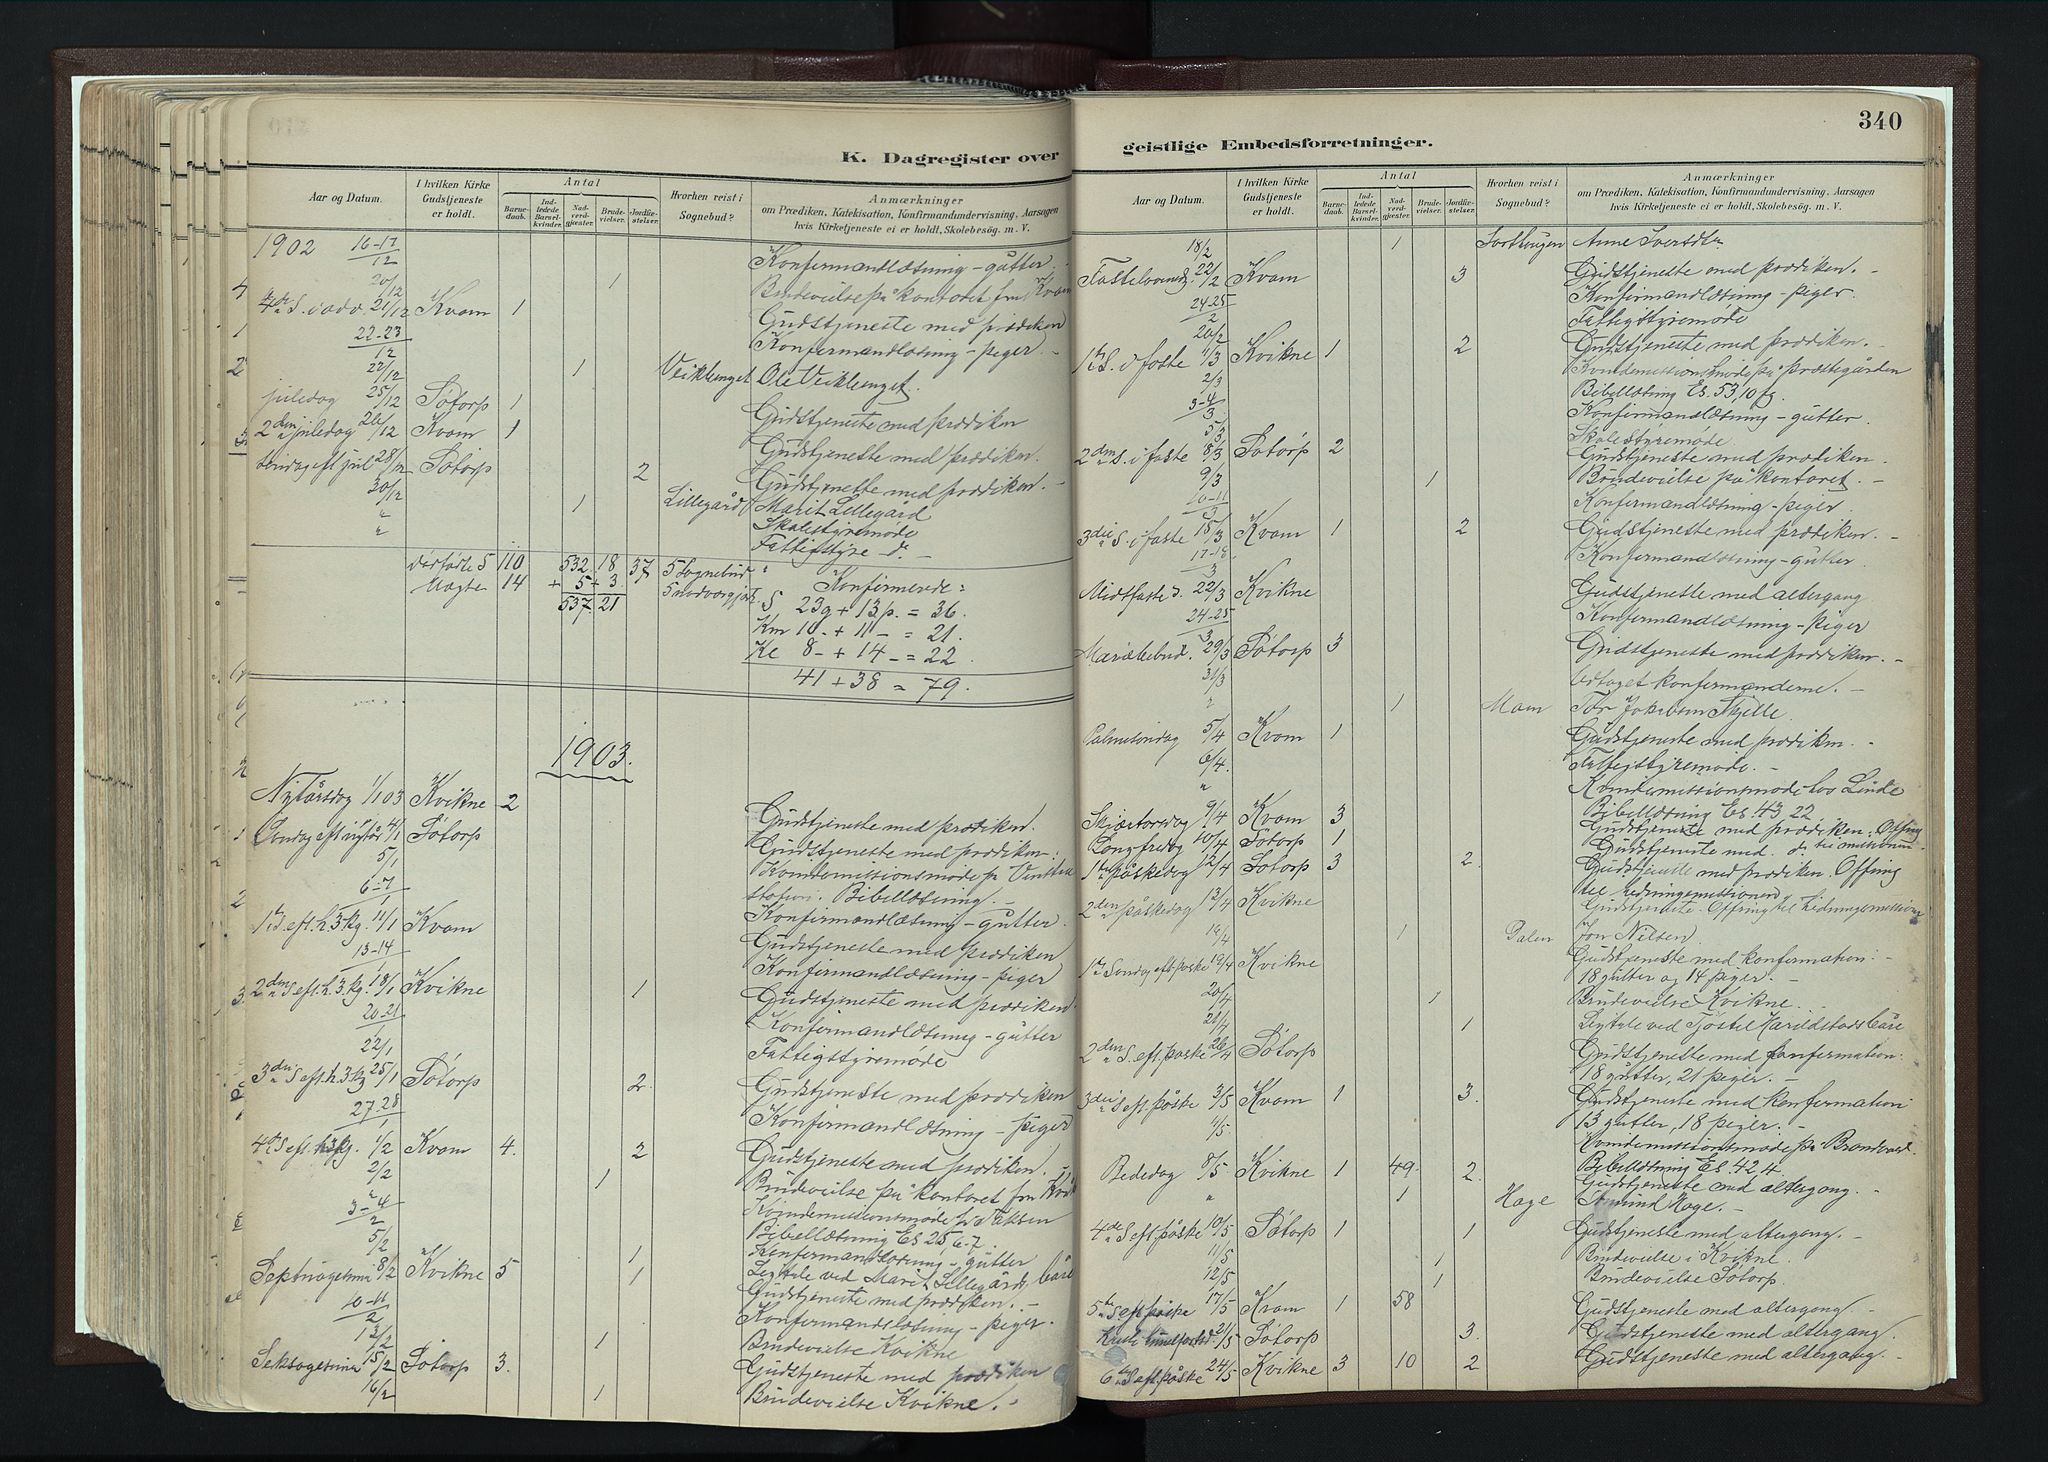 340
K. Dagregister over
geistlige Embedsforretninger.
Aar og Datum.
I hvilken Kirke Gudstjeneste er holdt.
Antal
Barnedaab.
Indledede Barselkvinder.
Nadverdgjester.
Brudevielser.
Jordfæstelser.
Hvorhen reist i Sognebud?
Anmærkninger
om Prædiken, Katekisation, Konfirmandundervisning, Aarsagen
hvis Kirketjeneste ei er holdt, Skolebesøg. m. V.
1902 16-17/12 Konfirmandlæsning - gutter.
20/12 1 Brudevielse på kontoret fra Kvam
4de S. i adv. 21/12 Kvam 1 Gudstjeneste med prædiken
22-23/12 Konfirmandlæsning - piger.
22/12 1 Veiklenget Ole Veiklenget.
juledag 25/12 Sødorp 1 Gudstjeneste med prædiken
2den juledag 26/12 Kvam 1 Gudstjeneste med prædiken.
Søndag eft jul 28/12 Sødorp 2 Gudstjeneste med prædiken.
30/12 1 Lillegård Marit Lillegård
" Skolestyremøde
" Fattigstyre- do -
110 532 18 37 5 Sognebud
Uægte 14 + 5 + 3
537 21
Konfirmerede:
S 23g + 13p. = 36.
Km 10 - + 11 - = 21.
Ke 8 - + 14 - = 22.
41 + 38 = 79.
1903.
Nytårsdag 1/1 03 Kvikne 2 Gudstjeneste med prædiken.
Søndag eft nytår 4/1 Sødorp Gudstjeneste med prædiken.
5/1 Kvindemissionsmøde på Vinstra
station. Bibellæsning.
6-7/1 Konfirmandlæsning - gutter.
1ste S. eft. h. 3 kg. 11/1 Kvam Gudstjeneste med prædiken
13-14/1 Konfirmandlæsning - piger
2den S eft. h. 3 kg. 18/1 Kvikne 1 Gudstjeneste med prædiken.
20-21/1 Konfirmandlæsning - gutter
22/1 Fattigstyremøde
3die S eft. h. 3 kg 25/1 Sødorp 2. Gudstjeneste med prædiken
27-28/1 Konfirmandlæsning - piger
4de S eft. h3kg. 1/2 Kvam 4. 2 Gudstjeneste med prædiken.
2/2 1 Brudevielse på kontoret fra
" Kvindemissionsmøde
Bibellæsning Es 25, 6-7.
3-4/2 Konfirmandlæsning - gutter
5/2 1 Ligtale ved Marit Lillegårds båre
Septuagesima 8/2 Kvikne 5 1 Gudstjeneste med prædiken.
10-11/2 Konfirmandlæsning - piger.
12/2 1 Brudevielse Kvikne
Seksagesima 15/2 Sødorp 3. Gudstjeneste med prædiken
16/2 1 Brudevielse Kvikne.
Aar og Datum.
I hvilken Kirke Gudstjeneste er holdt.
Antal
Barnedaab.
Indledede Barselkvinder.
Nadverdgjester.
Brudevielser.
Jordfæstelser.
Hvorhen reist i Sognebud?
Anmærkninger
om Prædiken, Katekisation, Konfirmandundervisning, Aarsagen
hvis Kirketjeneste ei er holdt, Skolebesøg. m. V.
18/2 1 Anne Iversdtr
Fastelavnss. 22/2 Kvam 3 Gudstjeneste med prædiken.
24-25/2 Konfirmandlæsning - piger.
26/2 Fattigstyremøde
1ste S. i faste 1/3 Kvikne 1 2 Gudstjeneste med prædiken.
2/3 Kvindemissionsmøde på præstegården
Bibellæsning Es. 53, 10 fg.
3-4/3 Konfirmandlæsning - gutter.
5/3 Skolestyremøde
2den S. i faste 8/3 Sødorp 2 Gudstjeneste med prædiken.
9/3 1 Brudevielse på kontoret.
10-11/3 Konfirmandlæsning - piger
3die S. i faste 15/3 Kvam 1 2 Gudstjeneste med prædiken.
17-18/3 Konfirmandlæsning - gutter
Midtfaste s. 22/3 Kvikne Gudstjeneste med altergang
24-25/3 Konfirmandlæsning - piger
Mariæbebud. 29/3 Sødorp 3 Gudstjeneste med prædiken.
31/3 konfirmanderne.
" 1 Moen Tor Jakobsen
Palmesøndag 5/4 Kvam 1 Gudstjeneste med prædiken.
6/4. Fattigstyremøde.
" Kvindemissionsmøde hos Linde
Bibellæsning Es. 43, 22
Skjærtorsdag 9/4 Kvam 3 Gudstjeneste med prædiken. Offring
Langfredag 10/4 Sødorp 1 Gudstjeneste med do. til missionen
1ste påskedag 12/4 Sødorp 3 2. Gudstjeneste med prædiken. Offring
til hedningemissionen
2den påskedag 13/4 Kvikne Gudstjeneste. Offring til hedningemissionen
1 Jon Nilsen
1ste Søndag eft påske 19/4 Kvikne Gudstjeneste med konfirmation:
18 gutter og 14 piger.
20/4 1 Brudevielse Kvikne.
21/4 1 Ligtale ved
2den S. eft. påske 26/4 Sødorp Gudstjeneste med konfirmation:
18 gutter, 21 piger.
3die S eft påske 3/5 Kvam 1 3. Gudstjeneste med konfirmation
13 gutter, 18 piger.
4/5. Kvindemissionsmøde på
Bibellæsning Es. 42, 4.
Bededag 8/5 Kvikne 1 49. 2. Gudstjeneste med altergang.
" 1 Hage Amund Hage.
4de S eft. påske 10/5 Sødorp 1 1 Gudstjeneste med altergang.
11/5 1 Brudevielse i Kvikne.
12/5 1 Brudevielse Sødorp.
5te S eft påske 17/5 Kvam 1 58 Gudstjeneste med altergang.
Kristi himmelfartsd. 21/5 Sødorp 3. Gudstjeneste med altergang.
6te S eft. påske 24/5 Kvikne 3 10 2 Gudstjeneste med altergang.